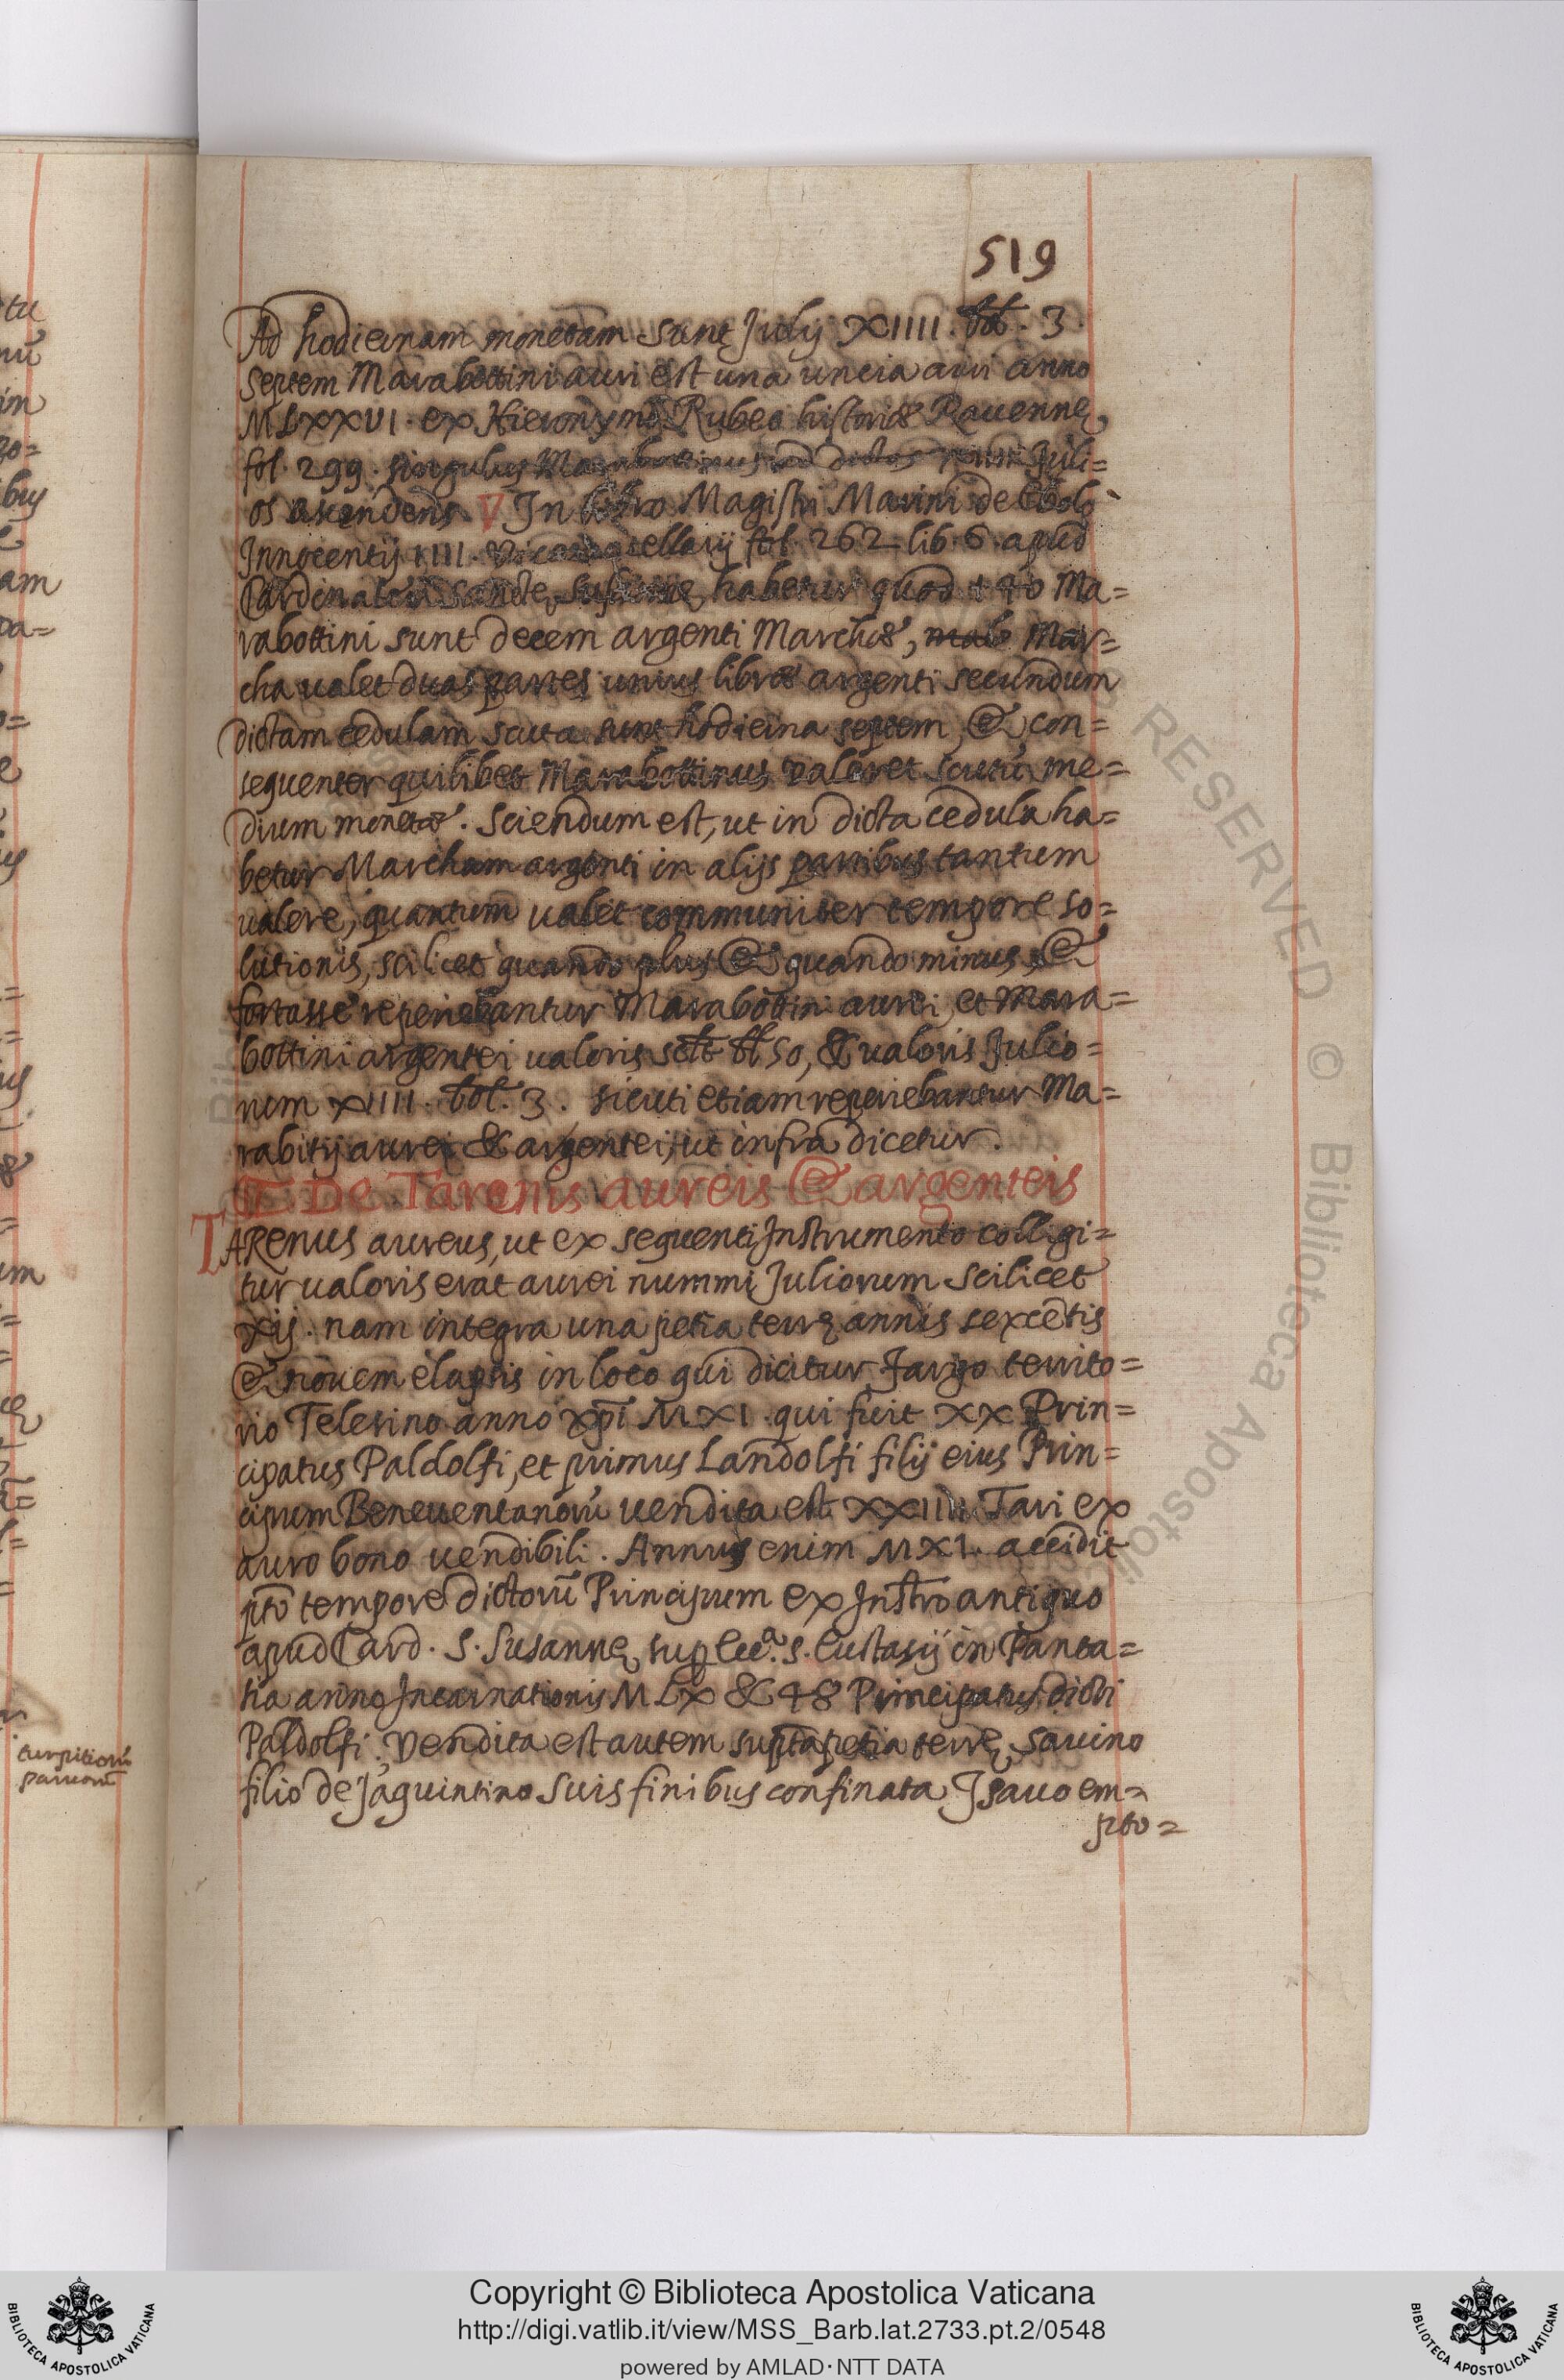 519
Ad hodiernam monetam sunt Julij XIIII. bol. 3.
septem Marabottini auri est una uncia auri anno
MLXXVI. ex Hieronymo Rubeo historiæ Rauennę
fol. 299. singulus Marabotinus ad dictos XIIII Juli=
os ascendens. In libro Magistri Marini de Ebolo
Innocentij IIII. Vicecancellarij fol. 262 lib. 6. apud
Cardinalem Sanctę Susannę habetur quod 140 Ma=
rabottini sunt decem argenti Marchæ, Mar=
cha ualet duas partes unius libræ argenti secundum
dictam cedulam scuta sunt hodierna septem, & con=
sequenter quilibet Marabottinus valeret scutũ me=
dium monetæ. Sciendum est, ut in dicta cedula ha=
betur Marcham argenti in alijs partibus tantum
ualere, quantum ualet communiter tempore so=
lutionis, scilicet quando plus & quando minus, &
fortasse reperiebantur Marabottini aurei, et Mara=
bottini argentei ualoris 50, & ualoris Julio=
rum XIIII. bol. 3. sicuti etiam reperiebantur Ma=
rabitij aurei & argentei, ut infra dicetur.
De Tarenis aureis & argenteis
TARENUS aureus, ut ex sequenti Instrumento colligi=
tur ualoris erat aurei nummi Juliorum scilicet
xij. nam integra una petia terrę annis sexcẽtis
& nouem elapsis in loco qui dicitur Jargo territo=
rio Telesino anno xp̃i MXI. qui fuit XX Prin=
cipatus Paldolfi, et primus Landolfi filij eius Prin=
cipum Beneuentanorũ uendita est XXIIII Tari ex
auro bono uendibili. Annus enim MXI. accidit
pt̃o tempore dictorũ Principum ex Instro antiquo
apud Card. S. Susannę sup Ecc.ª S. Eustasij in Panta=
tia anno Incarnationis MLX & 48 Principatus dicti
Paldolfi. Vendita est autem supta petia terrę Sauino
filio de Jaquintino suis finibus confinata Isauo em=
pto=
turpitiorũ
paruorũ
Copyright © Biblioteca Apostolica Vaticana
http://digi.vatlib.it/view/MSS_Barb.lat.2733.pt.2/0548
powered by AMLAD·NTT DATA
BIBLIOTECA APOSTOLICA VATICANA
BIBLIOTECA APOSTOLICA VATICANA